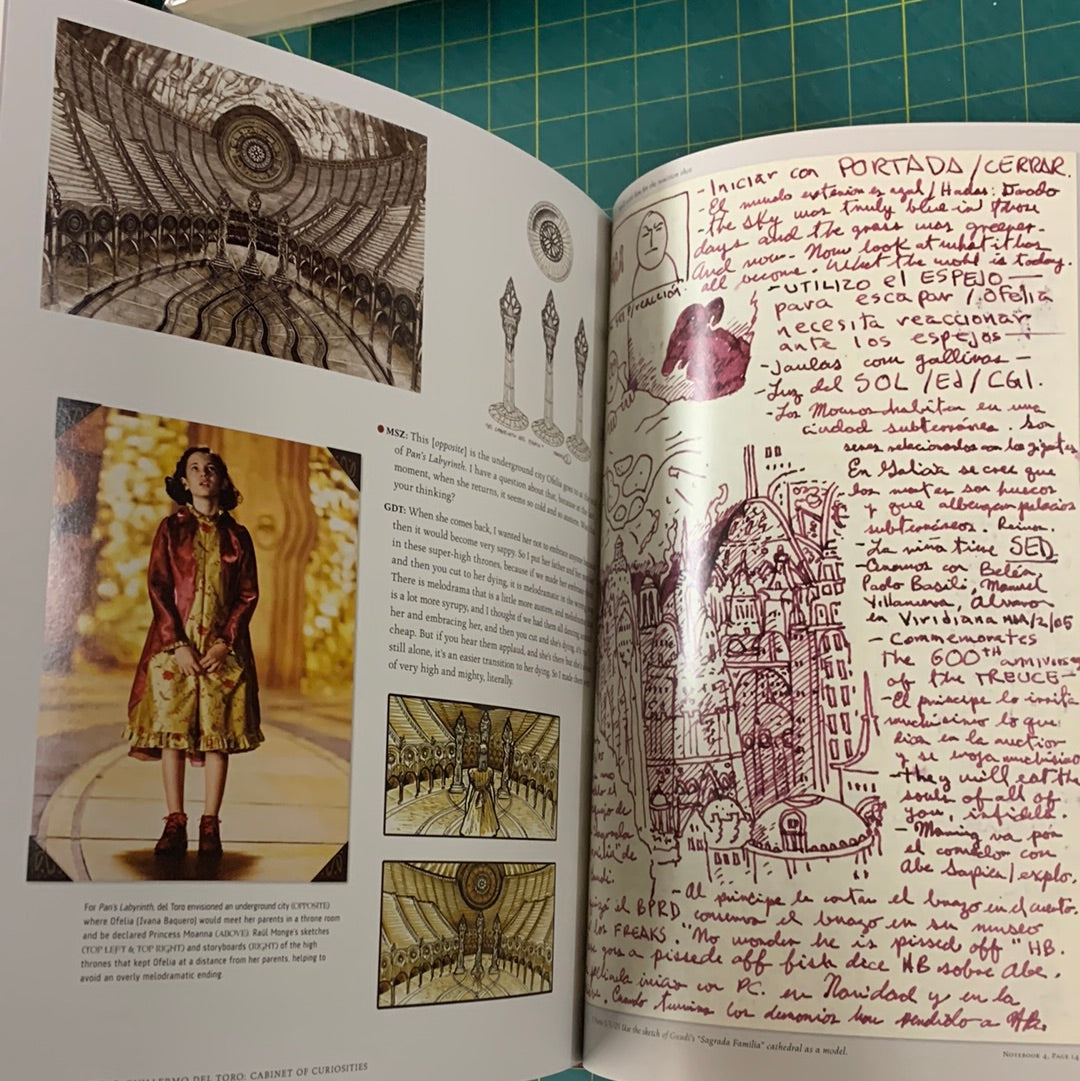 MSZ: This [opposite] is the underground city Ofelia goes to at the
of Pan's Labyrinth. I have a question about that, because at the
moment, when she returns, it seems so cold and so austere.
your thinking?
GDT: When she comes back, I wanted her not to embrace anyone
then it would become very sappy. So I put her father and her
in these super-high thrones, because if we made her embrace
and then you cut to her dying, it is melodramatic in the
There is melodrama that is a little more austere, and melodrama
is a lot more syrupy, and I thought if we had them all dancing
her and embracing her, and then you cut and she's dying, it's
cheap. But if you hear them applaud, and she's there but she's
still alone, it's an easier transition to her dying. So I made them
of very high and mighty, literally.
For Pan's Labyrinth, del Toro envisioned an underground city (OPPOSITE)
where Ofelia (Ivana Baquero) would meet her parents in a throne room
and be declared Princess Moanna (ABOVE). Raúl Monge's sketches
(TOP LEFT & TOP RIGHT) and storyboards (RIGHT) of the high
thrones that kept Ofelia at a distance from her parents, helping to
avoid an overly melodramatic ending.
GUILLERMO DEL TORO: CABINET OF CURIOSITIES
- Iniciar con PORTADA/CERRAR.
- El mundo exterior es azul/Hadas: Dorado
- the sky was truly blue in those
days and the grass was greener
And now- Now look at what it has
all become. What the world is today.
- UTILIZO el ESPEJO
para escapar/OFELIA
necesita reaccionar
ante los espejos
- Jaulas con gallinas -
- Luz del SOL/Ed/CGI.
- Los Mouros habitan en una
ciudad subterránea. Son
seres relacionados con los gigantes
En Galicia se cree que
los montes son huecos
y que albergan palacios
subterráneos. Reinan.
- La niña tiene SED
- Cenamos con Belén
Paolo Basili, Manuel
Villanueva, Alvaro
en Viridiana MA/2/05
- Commemorates
The 600TH annivers
of the TREUCE-
- El príncipe lo irrita
muchísimo lo que
lice en la auction
y se enoja muchísimo
- They will eat the
souls of all of
you, infidels.
- Manning va por
el corredor con
Abe Sapien/explo.
- Al príncipe le cortan el brazo en el cuento.
el BPRD conserva el brazo en su museo
los FREAKS. "No wonder he is pissed off" HB.
a pissed off fish dice HB sobre Abe.
película iniciar con P.C. en Navidad y en la
Cuando termina los demonios han vendido a
Use the sketch of Gaudí's "Sagrada Familia" cathedral as a model.
NOTEBOOK 4, PAGE 14